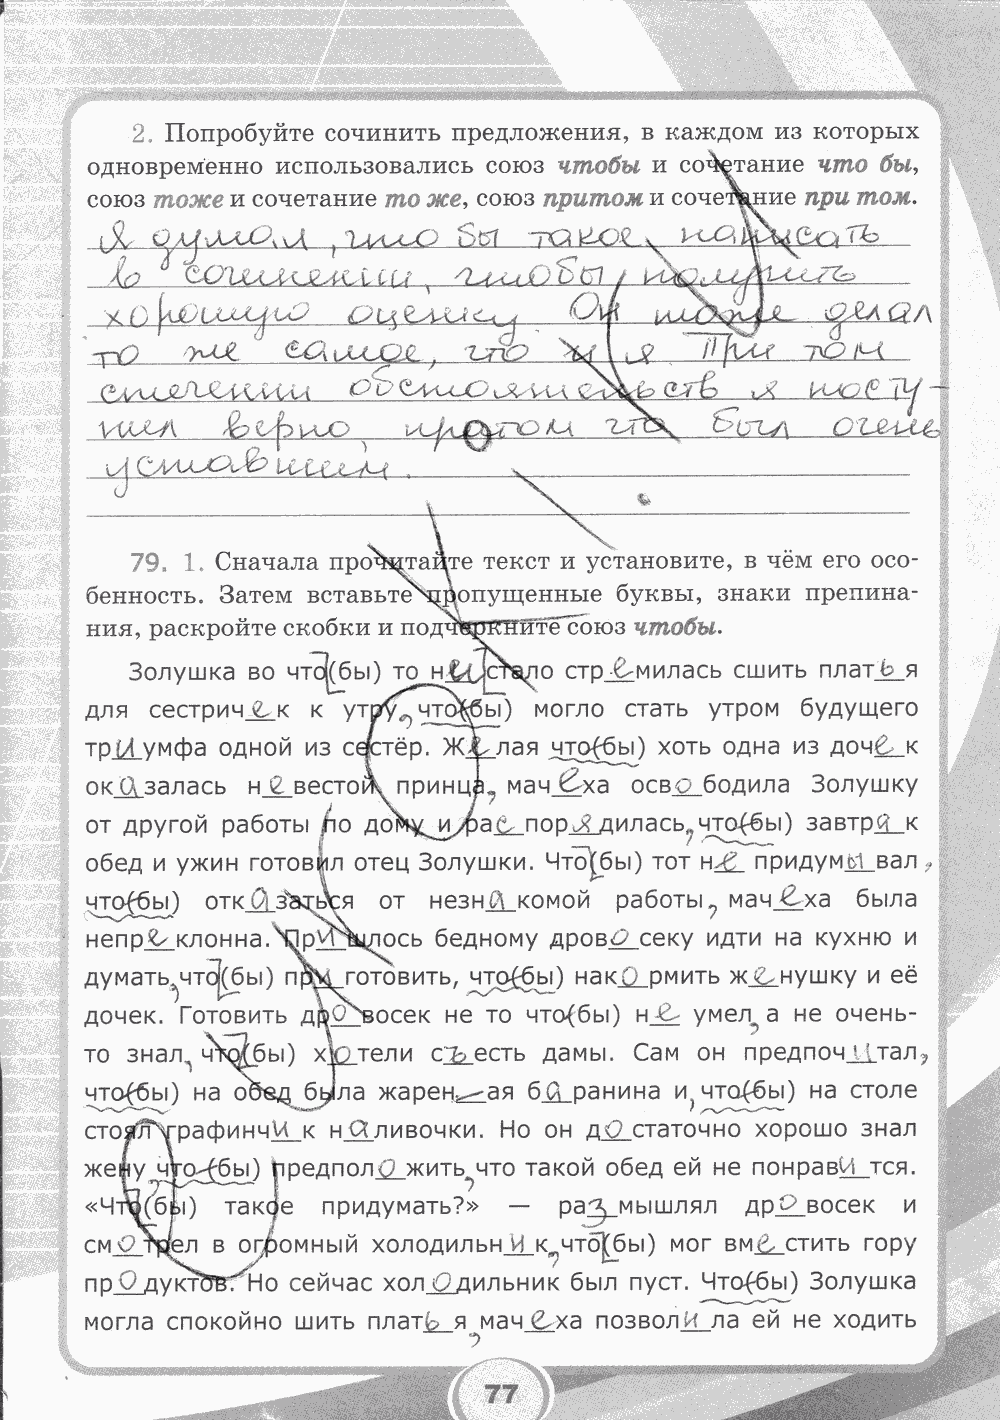 2. Попробуйте сочинить предложения, в каждом из которых
одновременно использовались союз чтобы и сочетание что бы,
союз тоже и сочетание то же, союз притом и сочетание при том.
Я думал, что бы такое написать
в сочинении, чтобы получить
хорошую оценку Он тоже делал
то же самое, что и я При том
стечении обстоятельств я посту-
пил верно, притом что был очень
уставшим.
79. 1. Сначала прочитайте текст и установите, в чём его осо-
бенность. Затем вставьте пропущенные буквы, знаки препина-
ния, раскройте скобки и подчеркните союз чтобы.
Золушка во что(бы) то ни стало стремилась сшить платья
для сестричек к утру, что(бы) могло стать утром будущего
триумфа одной из сестёр. Желая что(бы) хоть одна из дочек
оказалась невестой принца, мачеха освободила Золушку
от другой работы по дому и распорядилась, что(бы) завтрак
обед и ужин готовил отец Золушки. Что(бы) тот не придумывал,
что(бы) отказаться от незнакомой работы, мачеха была
непреклонна. Пришлось бедному дровосеку идти на кухню и
думать, что(бы) приготовить, что(бы) накормить женушку и её
дочек. Готовить дровосек не то что(бы) не умел, а не очень-
то знал, что(бы) хотели съесть дамы. Сам он предпочитал,
что(бы) на обед была жареная баранина и, что(бы) на столе
стоял графинчик наливочки. Но он достаточно хорошо знал
жену, что(бы) предположить, что такой обед ей не понравится.
«Что(бы) такое придумать?» — размышлял дровосек и
смотрел в огромный холодильник, что(бы) мог вместить гору
продуктов. Но сейчас холодильник был пуст. Что(бы) Золушка
могла спокойно шить платья, мачеха позволила ей не ходить
77